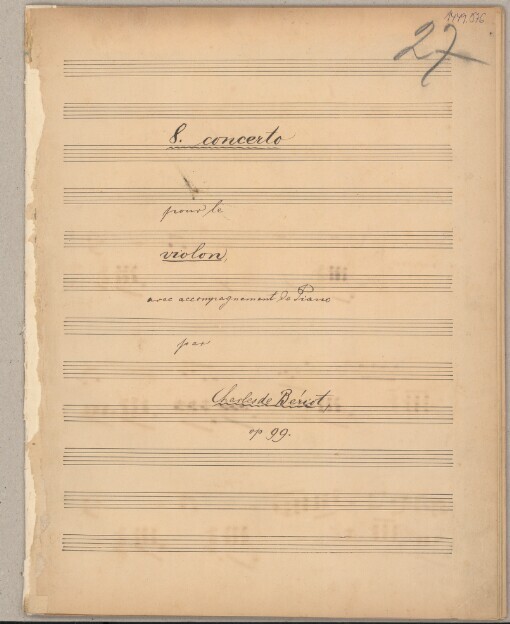 27
8. concerto
pour le
violon,
avec accompagnement de Piano
par
Charles de Bériot,
op 99.